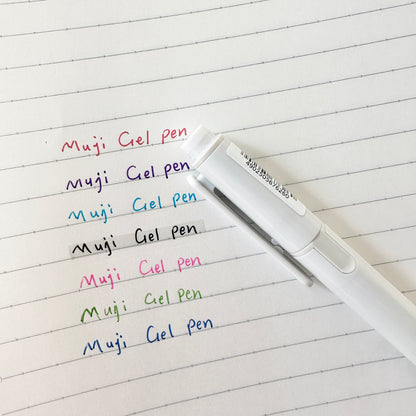 Muji Gel pen
Muji Gel pen
Muji Gel pen
Muji Gel pen
Muji Gel pen
Muji Gel pen
Muji Gel pen